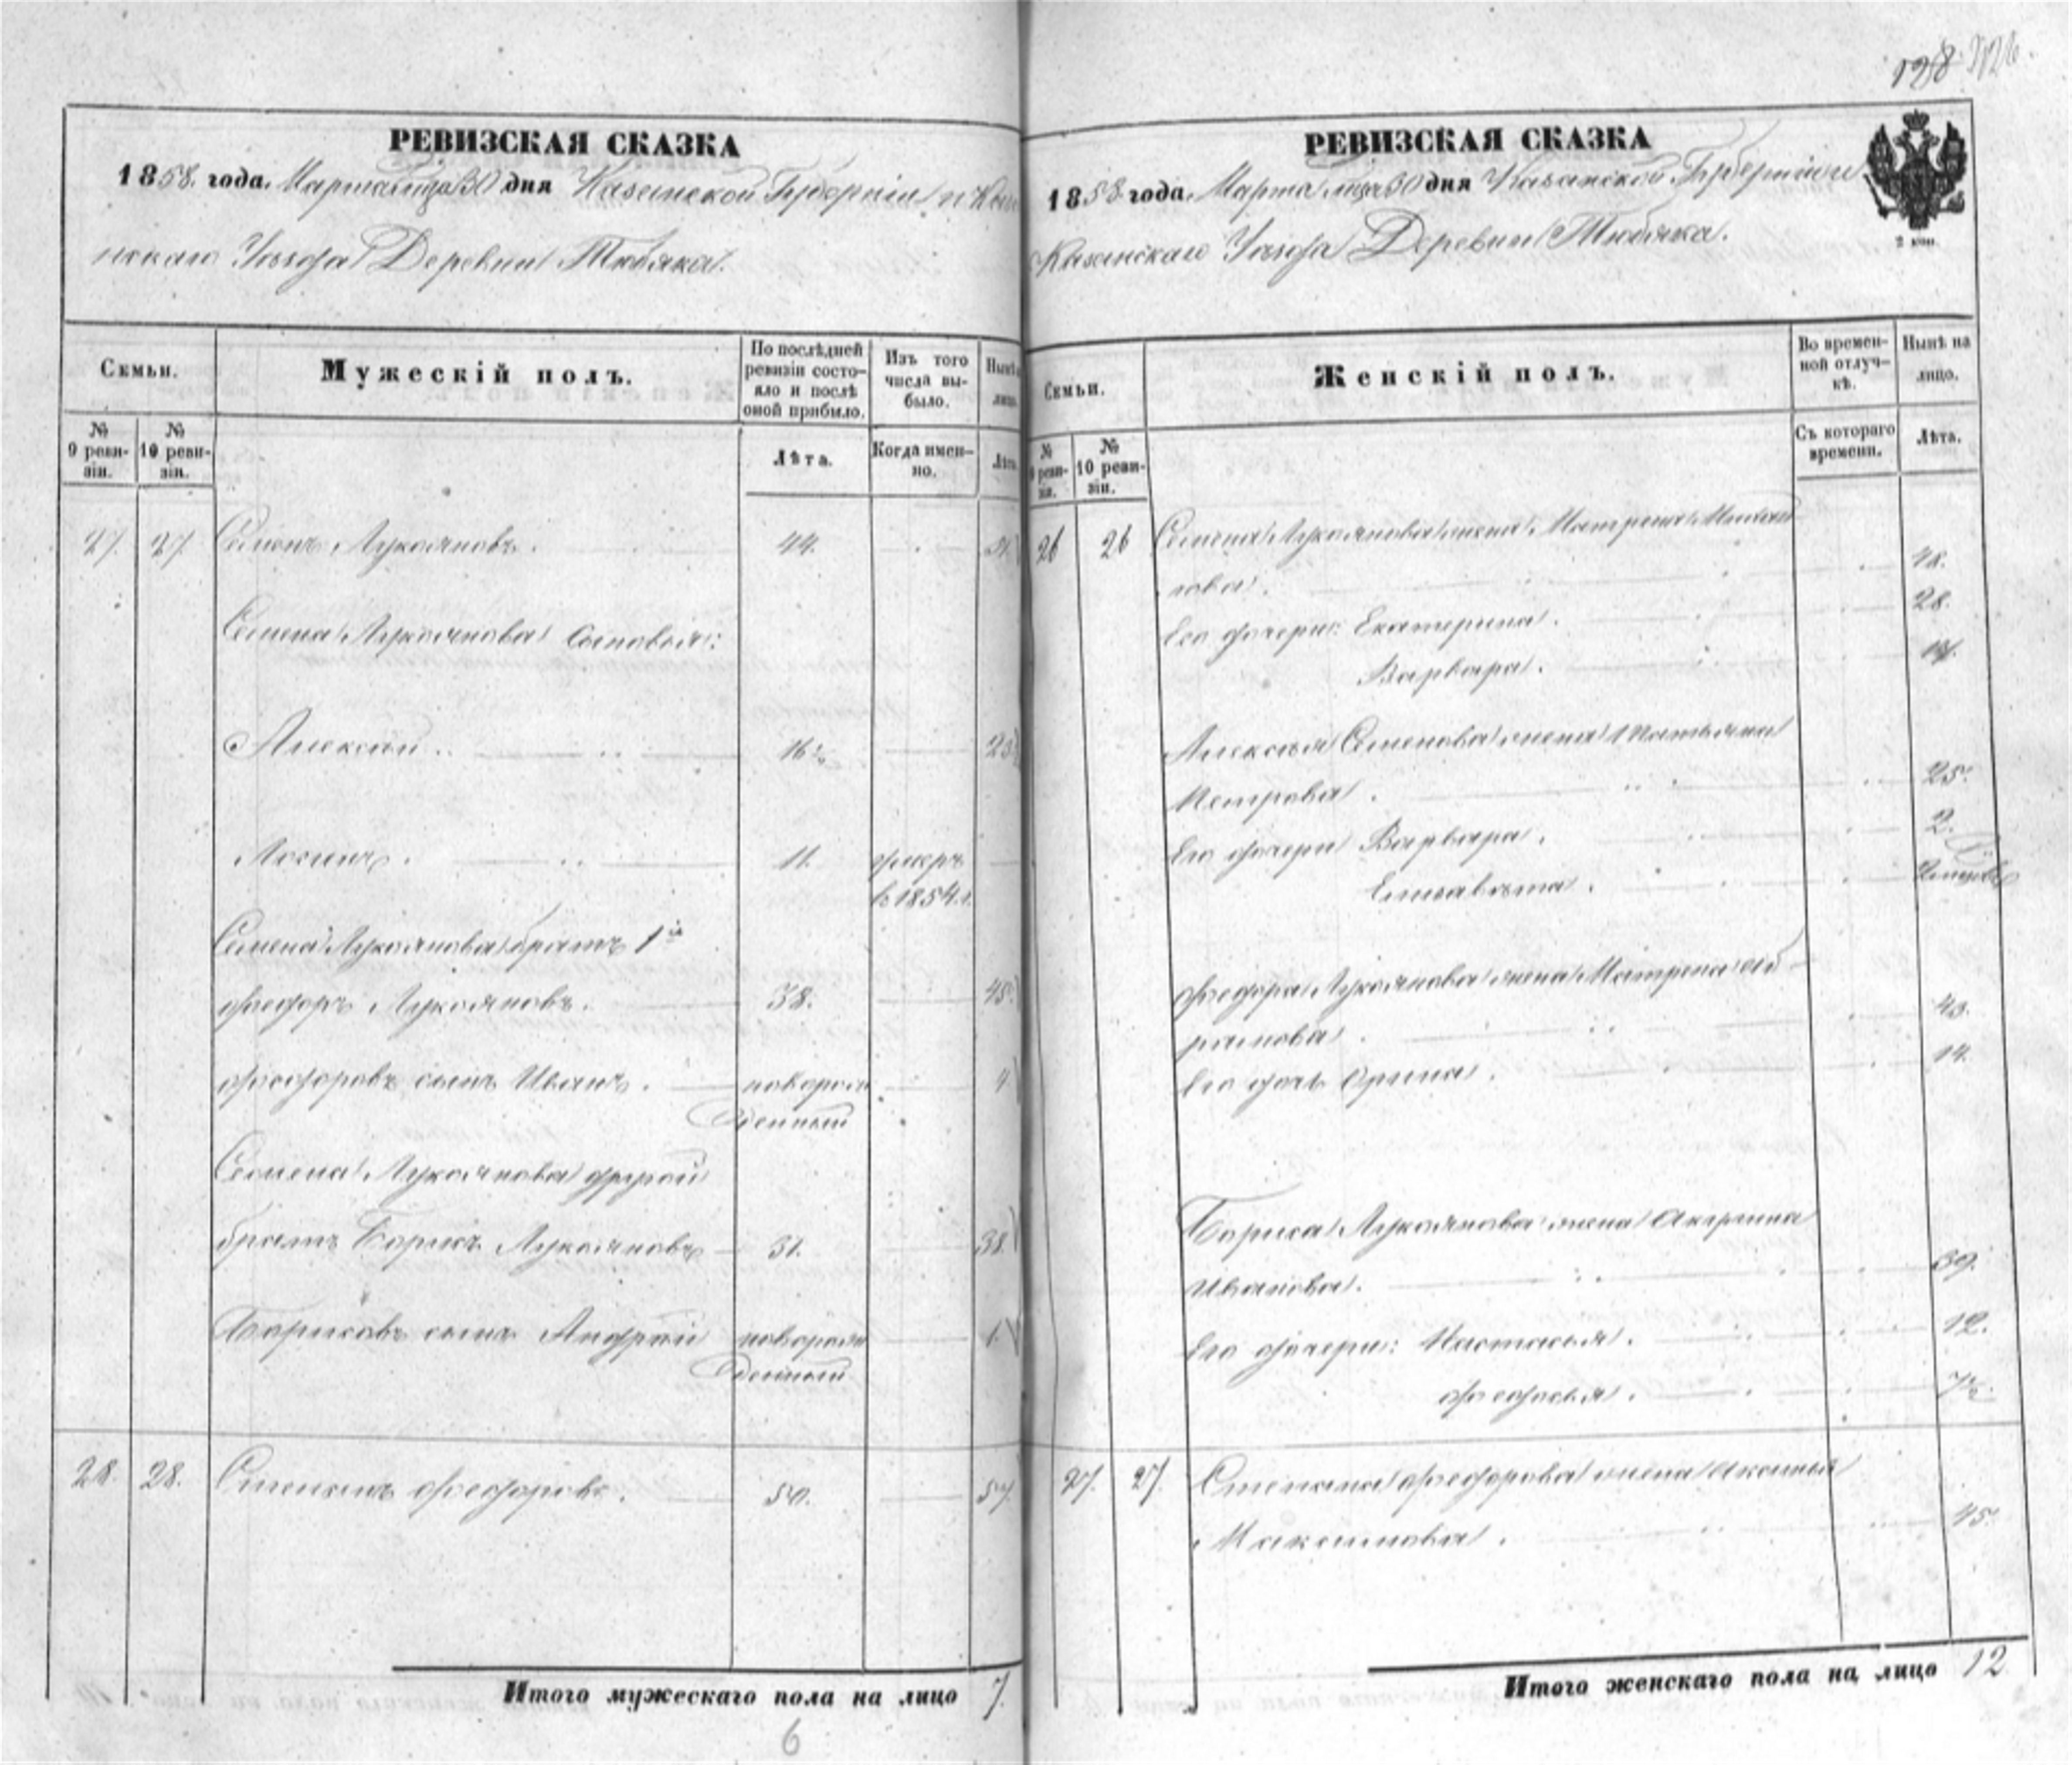 128
РЕВИЗСКАЯ СКАЗКА
1858 года. Марта м-ца 30 дня Казанской Губерніи и Казан
нскаго Уѣзда Деревни Тюбяка.
Семьи.
Мужескій полъ.
По послѣдней ревизіи состояло и послѣ оной прибыло.
Изъ того числа выбыло.
Нынѣ
лицо.
№ 9 ревизіи.
№ 10 ревизіи.
Лѣта.
Когда именно.
Лѣта.
27. 27. Семенъ Лукояновъ. 44.
Семена Лукоянова сыновья:
Алексѣй 16½ 23
Логинъ. 11. умеръ
въ 1854 г.
Семена Лукоянова братъ 1й
Федоръ Лукояновъ. 38. 45.
Федоровъ сынъ Иванъ. новорож
денный 4
Семена Лукоянова другой
братъ Борисъ Лукояновъ 31. 38.
Борисовъ сынъ Андрей новорож
денный 1.
28. 28. Степанъ Федоровъ. 50. 57.
Итого мужескаго пола на лицо 7.
6
РЕВИЗСКАЯ СКАЗКА
1858 года. Марта м-ца 30 дня Казанской Губерніи и
Казанскаго Уѣзда Деревни Тюбяка.
2 коп.
Семьи.
Женскій полъ.
Во временной отлучкѣ.
Нынѣ на лицо.
№ 9 ревизіи.
№ 10 ревизіи.
Съ котораго времени.
Лѣта.
26 26 Семена Лукоянова жена Матрена Михай
лова. 48.
Его дочери: Екатерина. 28.
Варвара. 17.
Алексѣя Семенова жена Татьяна
Петрова. 25.
Его дочери Варвара. 2.
Елизавета.
Федора Лукоянова жена Матрена Аб
рамова. 43.
Его дочь Орина. 14.
Бориса Лукоянова жена Акулина
Иванова. 39.
Его дочери: Настасья. 12.
Федосья. 7½.
27. 27. Степана Федорова жена
Максимова. 45.
Итого женскаго пола на лицо 12